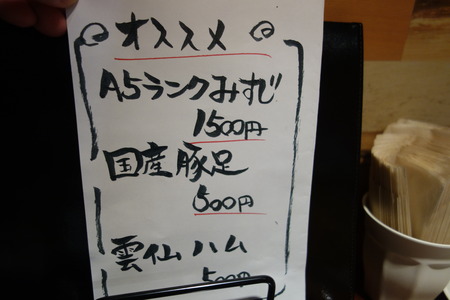 オススメ
A5ランクみすじ
1500円
国産豚足
500円
雲仙ハム
500円